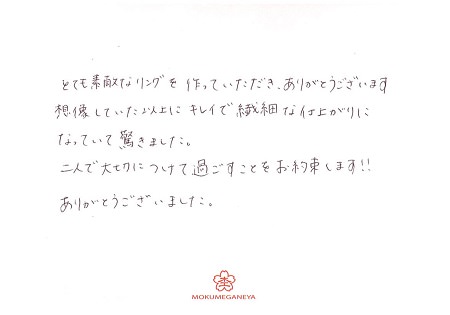 とても素敵なリングを作っていただき、ありがとうございます
想像していた以上にキレイで繊細な仕上がりに
なっていて驚きました。
二人で大切につけて過ごすことをお約束します!!
ありがとうございました。
MOKUMEGANEYA